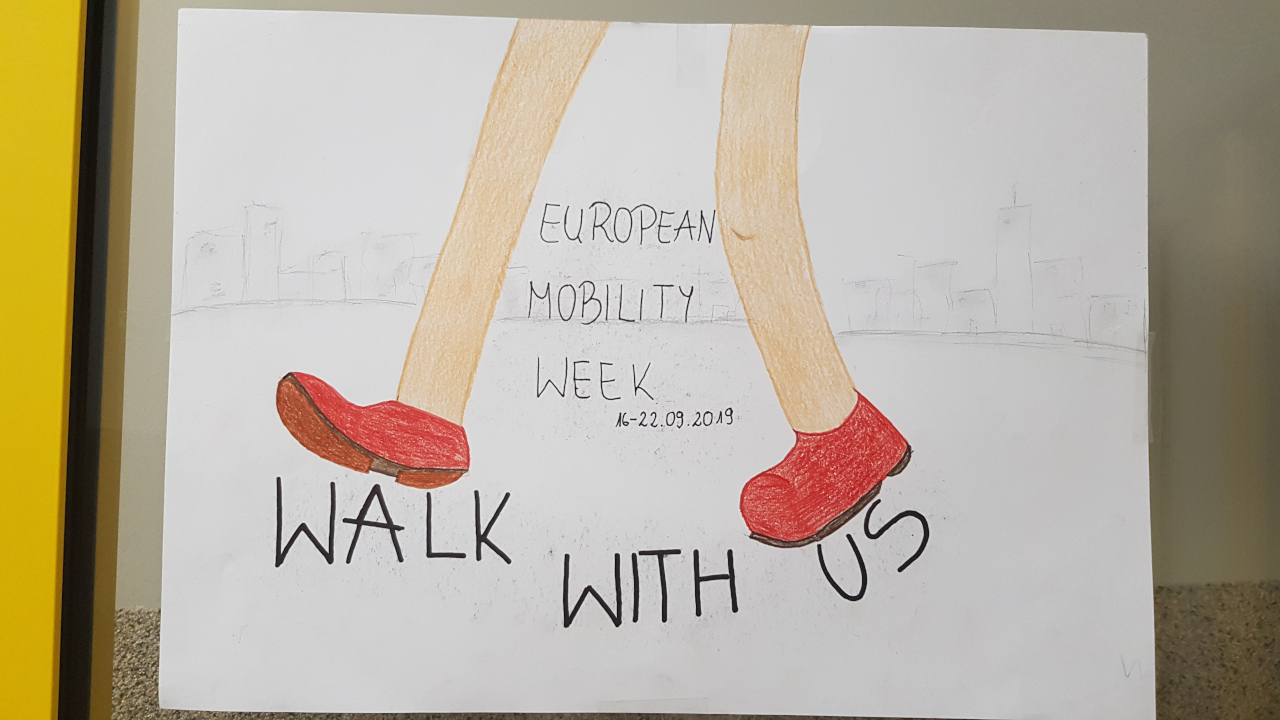 EUROPEAN
MOBILITY
WEEK
16-22.09.2019
WALK
WITH US